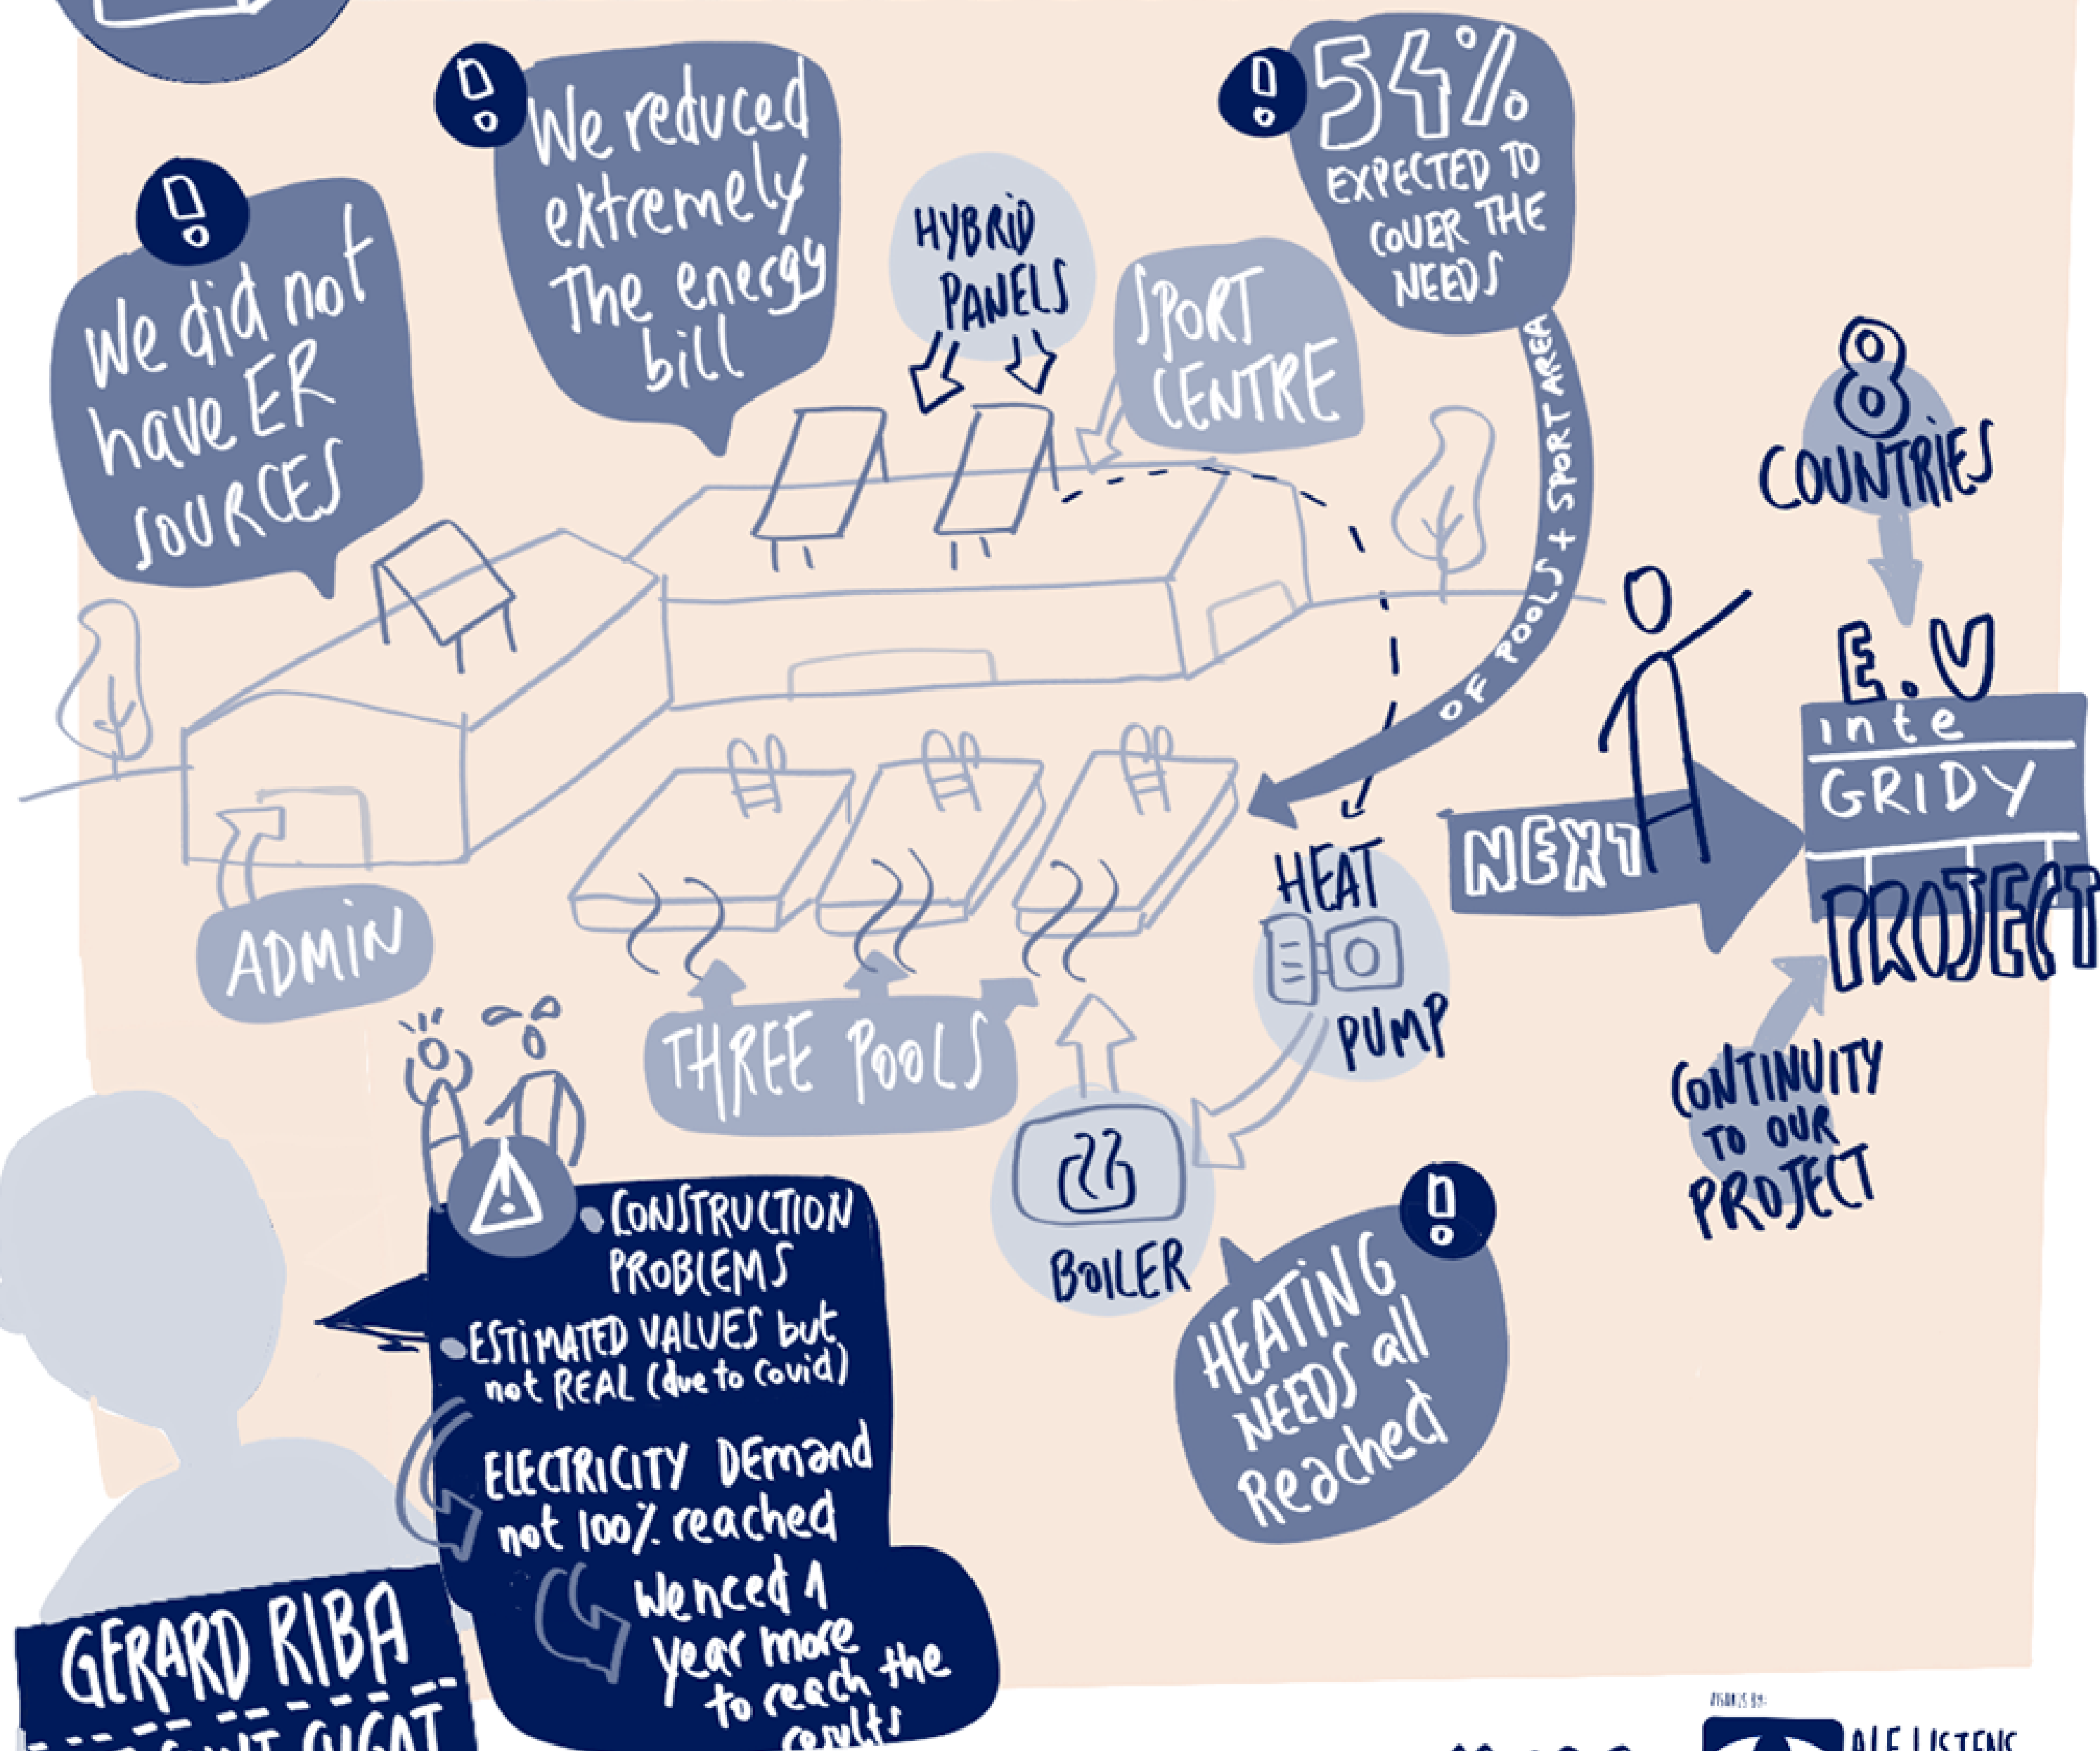 We did not
have ER
SOURCES
We reduced
extremely
The energy
bill
HYBRID
PANELS
SPORT
CENTRE
54%
EXPECTED TO
COVER THE
NEEDS
OF POOLS + SPORT AREA
8
COUNTRIES
E.U
inte
GRIDY
PROJECT
NEXT
CONTINUITY
TO OUR
PROJECT
ADMIN
THREE POOLS
HEAT
PUMP
BOILER
HEATING
NEEDS all
Reached
• CONSTRUCTION
PROBLEMS
• ESTIMATED VALUES but
not REAL (due to Covid)
ELECTRICITY Demand
not 100% reached
We need 1
year more
to reach the
results
GERARD RIBA
SANT CUGAT
VISUALS BY:
ALE LISTENS